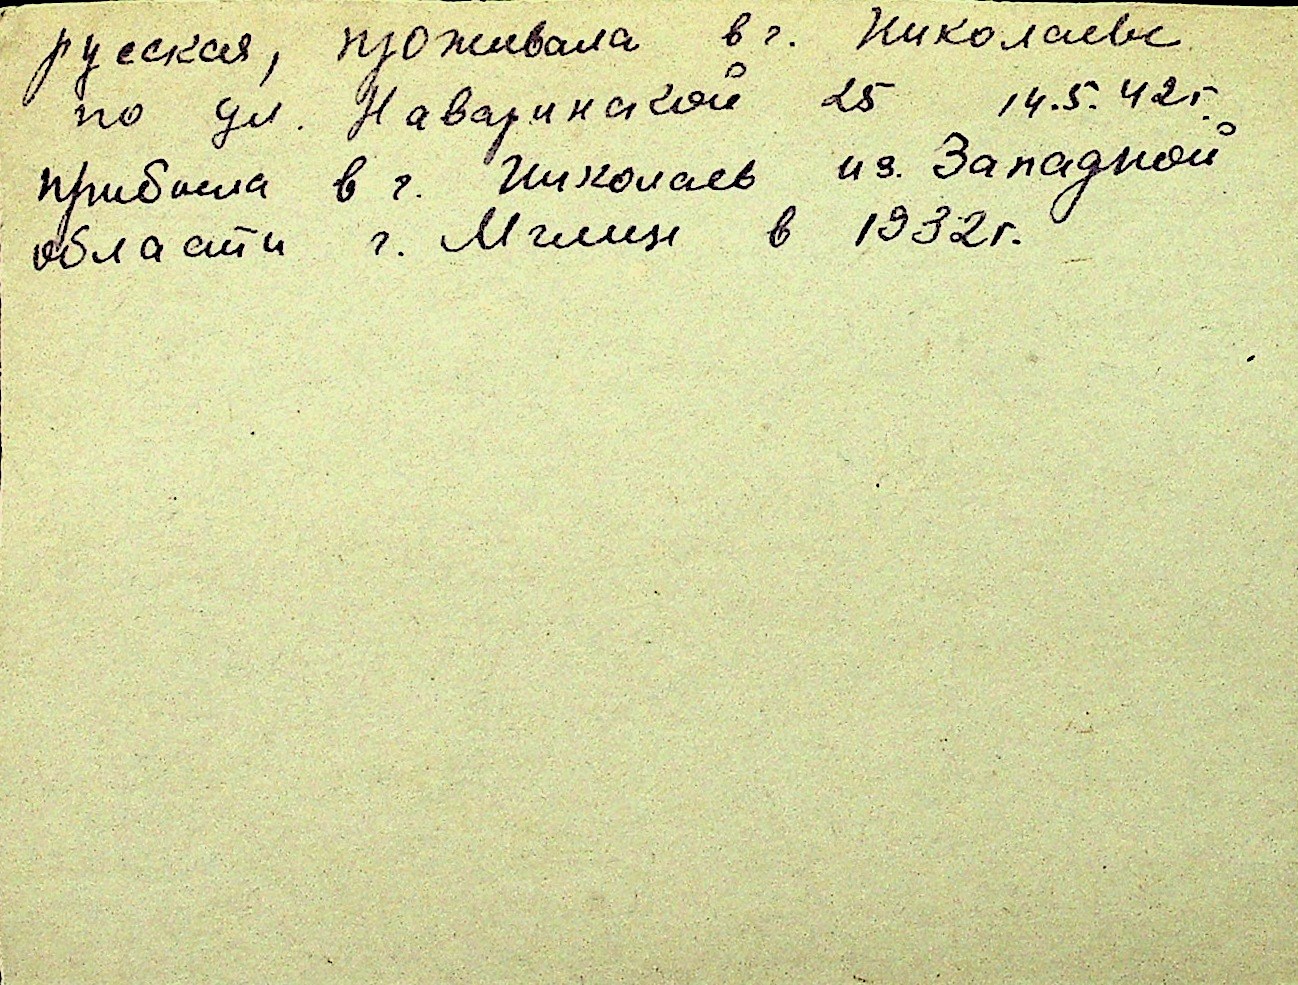 русская, проживала в г. Николаеве
по ул. Наваринской 25 14.5.42г.
прибыла в г. Николаев из. Западной
области г. Мглин в 1932г.